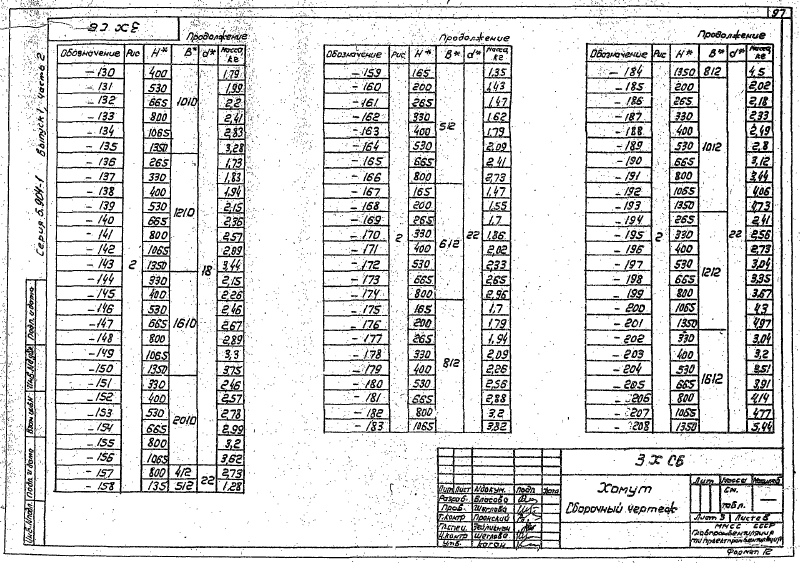 97
3 Х СБ
Серия 5.904-1 Выпуск 1, часть 2
Продолжение
Обозначение Рис Н* В* d* Масса, кг
-130 2 400 1010 18 1,79
-131 530 1,99
-132 665 2,2
-133 800 2,41
-134 1065 2,83
-135 1350 3,28
-136 265 1210 1,73
-137 330 1,83
-138 400 1,94
-139 530 2,15
-140 665 2,36
-141 800 2,57
-142 1065 2,89
-143 1350 3,44
-144 330 1610 2,15
-145 400 2,26
-146 530 2,46
-147 665 2,67
-148 800 2,89
-149 1065 3,3
-150 1350 3,75
-151 330 2010 2,46
-152 400 2,57
-153 530 2,78
-154 665 2,99
-155 800 3,2
-156 1065 3,62
-157 800 412 22 2,73
-158 135 512 1,28
Продолжение
Обозначение Рис Н* В* d* Масса, кг
-159 2 165 512 22 1,35
-160 200 1,43
-161 265 1,47
-162 330 1,62
-163 400 1,79
-164 530 2,09
-165 665 2,41
-166 800 2,73
-167 165 612 1,47
-168 200 1,55
-169 265 1,7
-170 330 1,86
-171 400 2,02
-172 530 2,33
-173 665 2,65
-174 800 2,96
-175 165 812 1,7
-176 200 1,79
-177 265 1,94
-178 330 2,09
-179 400 2,26
-180 530 2,56
-181 665 2,88
-182 800 3,2
-183 1065 3,82
Продолжение
Обозначение Рис Н* В* d* Масса, кг
-184 2 1350 812 22 4,5
-185 200 1012 2,02
-186 265 2,18
-187 330 2,33
-188 400 2,49
-189 530 2,8
-190 665 3,12
-191 800 3,44
-192 1065 4,06
-193 1350 4,73
-194 265 1212 2,41
-195 330 2,56
-196 400 2,73
-197 530 3,04
-198 665 3,35
-199 800 3,67
-200 1065 4,3
-201 1350 4,97
-202 330 1612 3,04
-203 400 3,2
-204 530 3,51
-205 665 3,91
-206 800 4,14
-207 1065 4,77
-208 1350 5,44
3 Х СБ
Хомут
Сборочный чертеж
Лит Масса Масштаб
См. табл.
Лист 5 Листов 6
ММСС СССР
Изм Лист № докум. Подп. Дата
Разраб. Власова
Пров. Щеглова
Т.контр Пронский
Н.контр Щеглова
Утв. Коган
Формат 12
Подп. и дата
Взам инв №
Подп. и дата